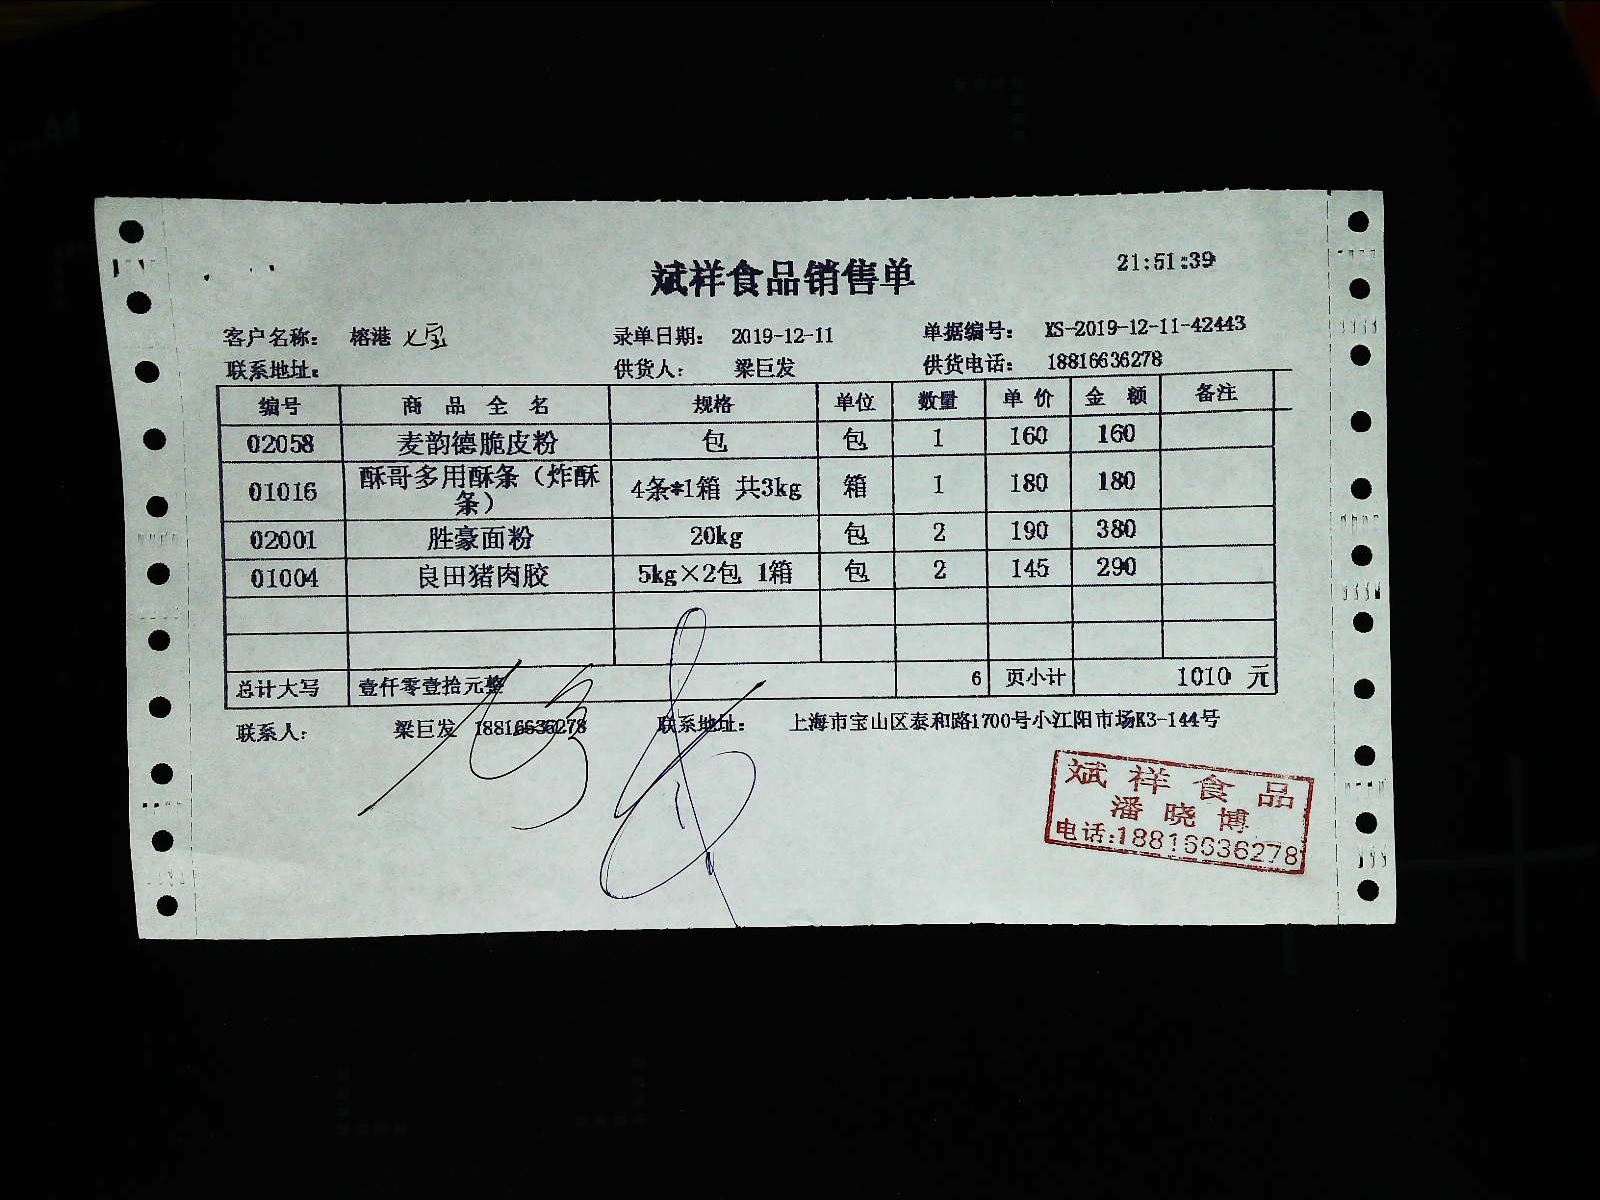 斌祥食品销售单 21:51:39
客户名称： 榕港 七宝 录单日期： 2019-12-11 单据编号： XS-2019-12-11-42443
联系地址： 供货人： 梁巨发 供货电话： 18816636278
编号 商 品 全 名 规格 单位 数量 单 价 金 额 备注
02058 麦韵德脆皮粉 包 包 1 160 160
01016 酥哥多用酥条（炸酥条） 4条*1箱 共3kg 箱 1 180 180
02001 胜豪面粉 20kg 包 2 190 380
01004 良田猪肉胶 5kg×2包 1箱 包 2 145 290
总计大写 壹仟零壹拾元整 6 页小计 1010 元
联系人： 梁巨发 18816636278 联系地址： 上海市宝山区泰和路1700号小江阳市场K3-144号
斌祥食品
潘晓博
电话:18816636278